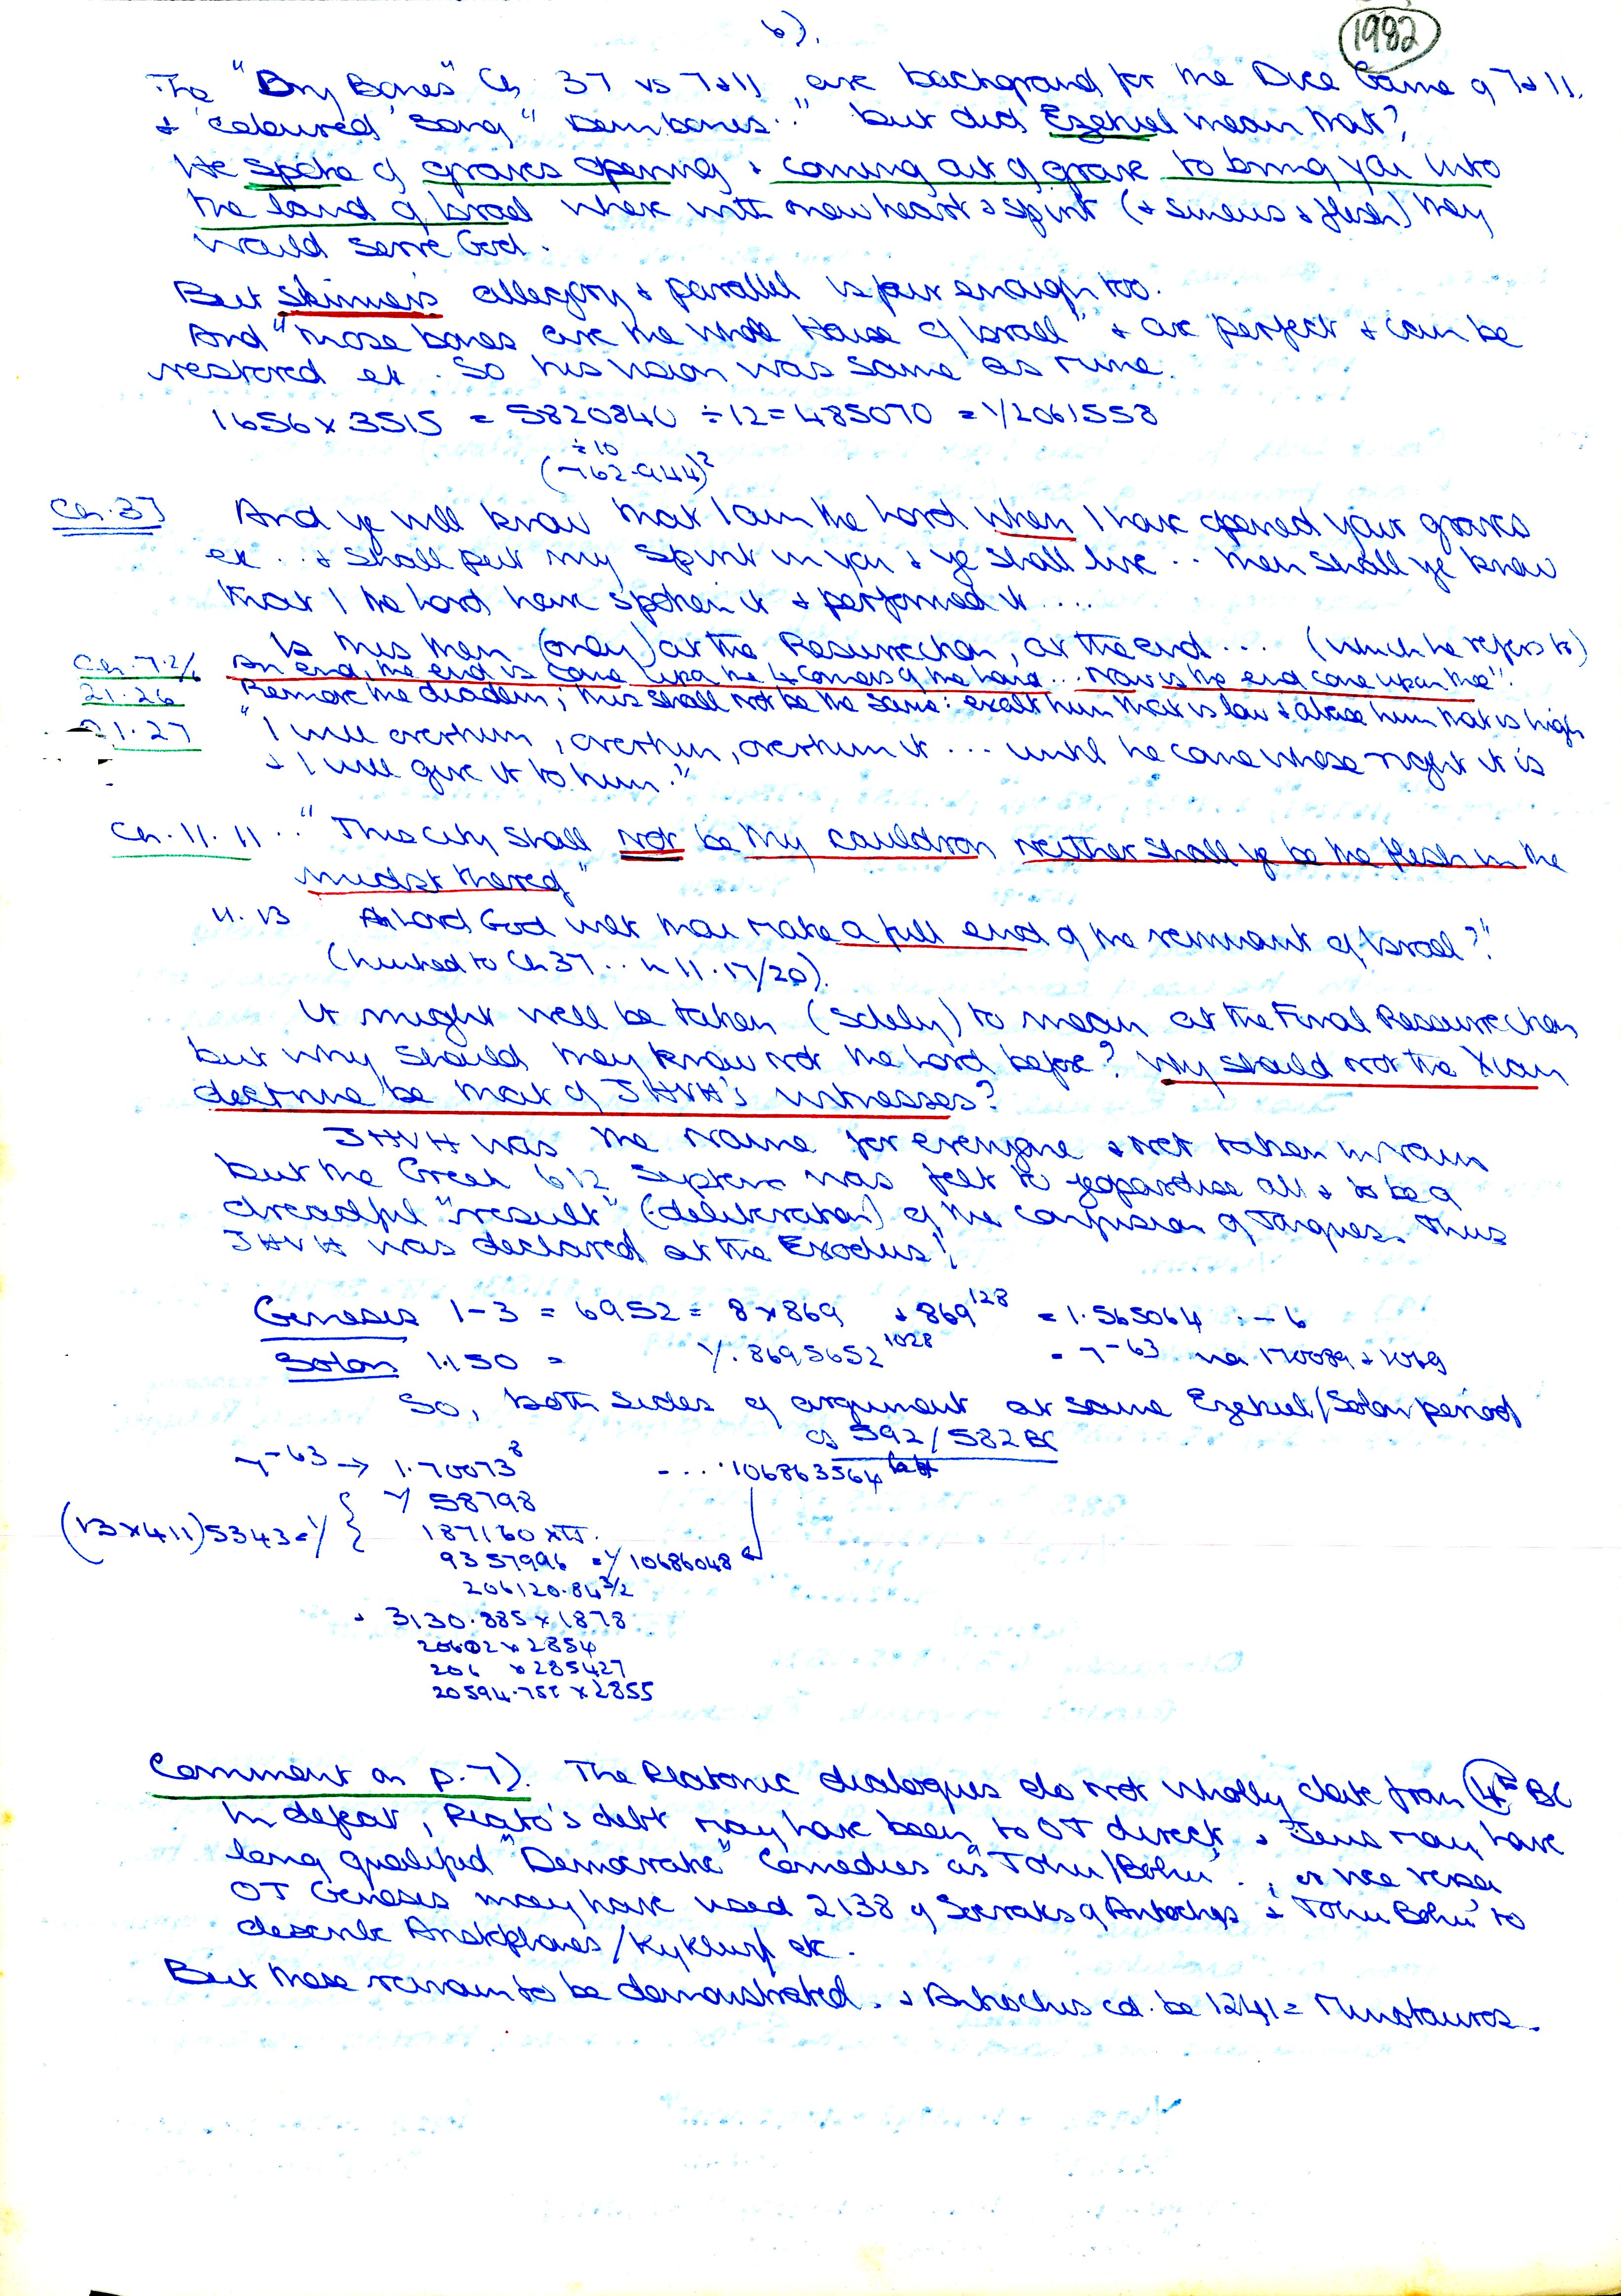 6).
1982
The "Dry Bones" Ch 37 vs 7 & 11 are background for the Dice Game of 7 & 11.
& 'coloured' song "Dem bones.." but did Ezekiel mean that?
He spoke of graves opening & coming out of grave to bring you into
the land of Israel where with new heart & spirit (& sinews & flesh) they
would serve God.
But Skinner's allegory & parallel is fair enough too.
And "those bones are the whole House of Israel" & are perfect & can be
restored etc. So his vision was same as mine.
1656 x 3515 = 5820840 ÷ 12 = 485070 = 1/2061558
÷ 10
(762.944)²
Ch. 37 And ye will know that I am the Lord when I have opened your graves
etc .. & shall put my spirit in you & ye shall live .. then shall ye know
that I the Lord have spoken it & performed it ....
Is this then (only) at the Resurrection, at the end ... (which he refers to)
Ch. 7.2/6 An end, the end is come upon the 4 corners of the land ... Now is the end come upon thee".
21.26 Remove the diadem; this shall not be the same: exalt him that is low & abase him that is high
21.27 "I will overturn, overturn, overturn it ... until he come whose right it is
& I will give it to him."
Ch. 11. 11 .. "This city shall not be my cauldron neither shall ye be the flesh in the
midst thereof"
11. 13 Ah Lord God wilt thou make a full end of the remnant of Israel?"
(linked to Ch 37 .. in 11.17/20).
It might well be taken (solely) to mean at the Final Resurrection
but why should they know not the Lord before? Why should not the Xian
doctrine be that of JHVH's witnesses?
JHVH was the name for everyone & not taken in vain
but the Greek 612 System was felt to jeopardise all & to be a
dreadful "result" (deliberation) of the confusion of Tongues. Thus
JHVH was declared at the Exodus!
Genesis 1-3 = 6952 = 8 x 869 & 869¹²⁸ = 1.565064 .-6
Solon 1.150 = 1/.8695652¹⁰²⁸ = 7⁻⁶³ via 170089 & 1069
So, both sides of argument at same Ezekiel/Solon period
of 592/582 BC
7⁻⁶³ → 1.70073⁸ - ... 106863564
(13x411) 5343 = 1/ { 1/ 58798
187160 xTT.
9357996 = 1/10686048
206120.84³/²
& 3130.885 x 1878
20602 x 2854
206 x 285427
20594.755 x 2855
Comment on p.7). The Platonic dialogues do not wholly date from 4th BC
In defeat, Plato's debt may have been to OT direct & Jews may have
long qualified "Democratic" Comedies as "Tohu/Bohu" . ; or vice versa
OT Genesis may have used 2138 of Socrates of Antiochus & 'Tohu Bohu' to
describe Aristophanes / etc.
But these remain to be demonstrated. & Antiochus cd. be 1241 = Minotauros.